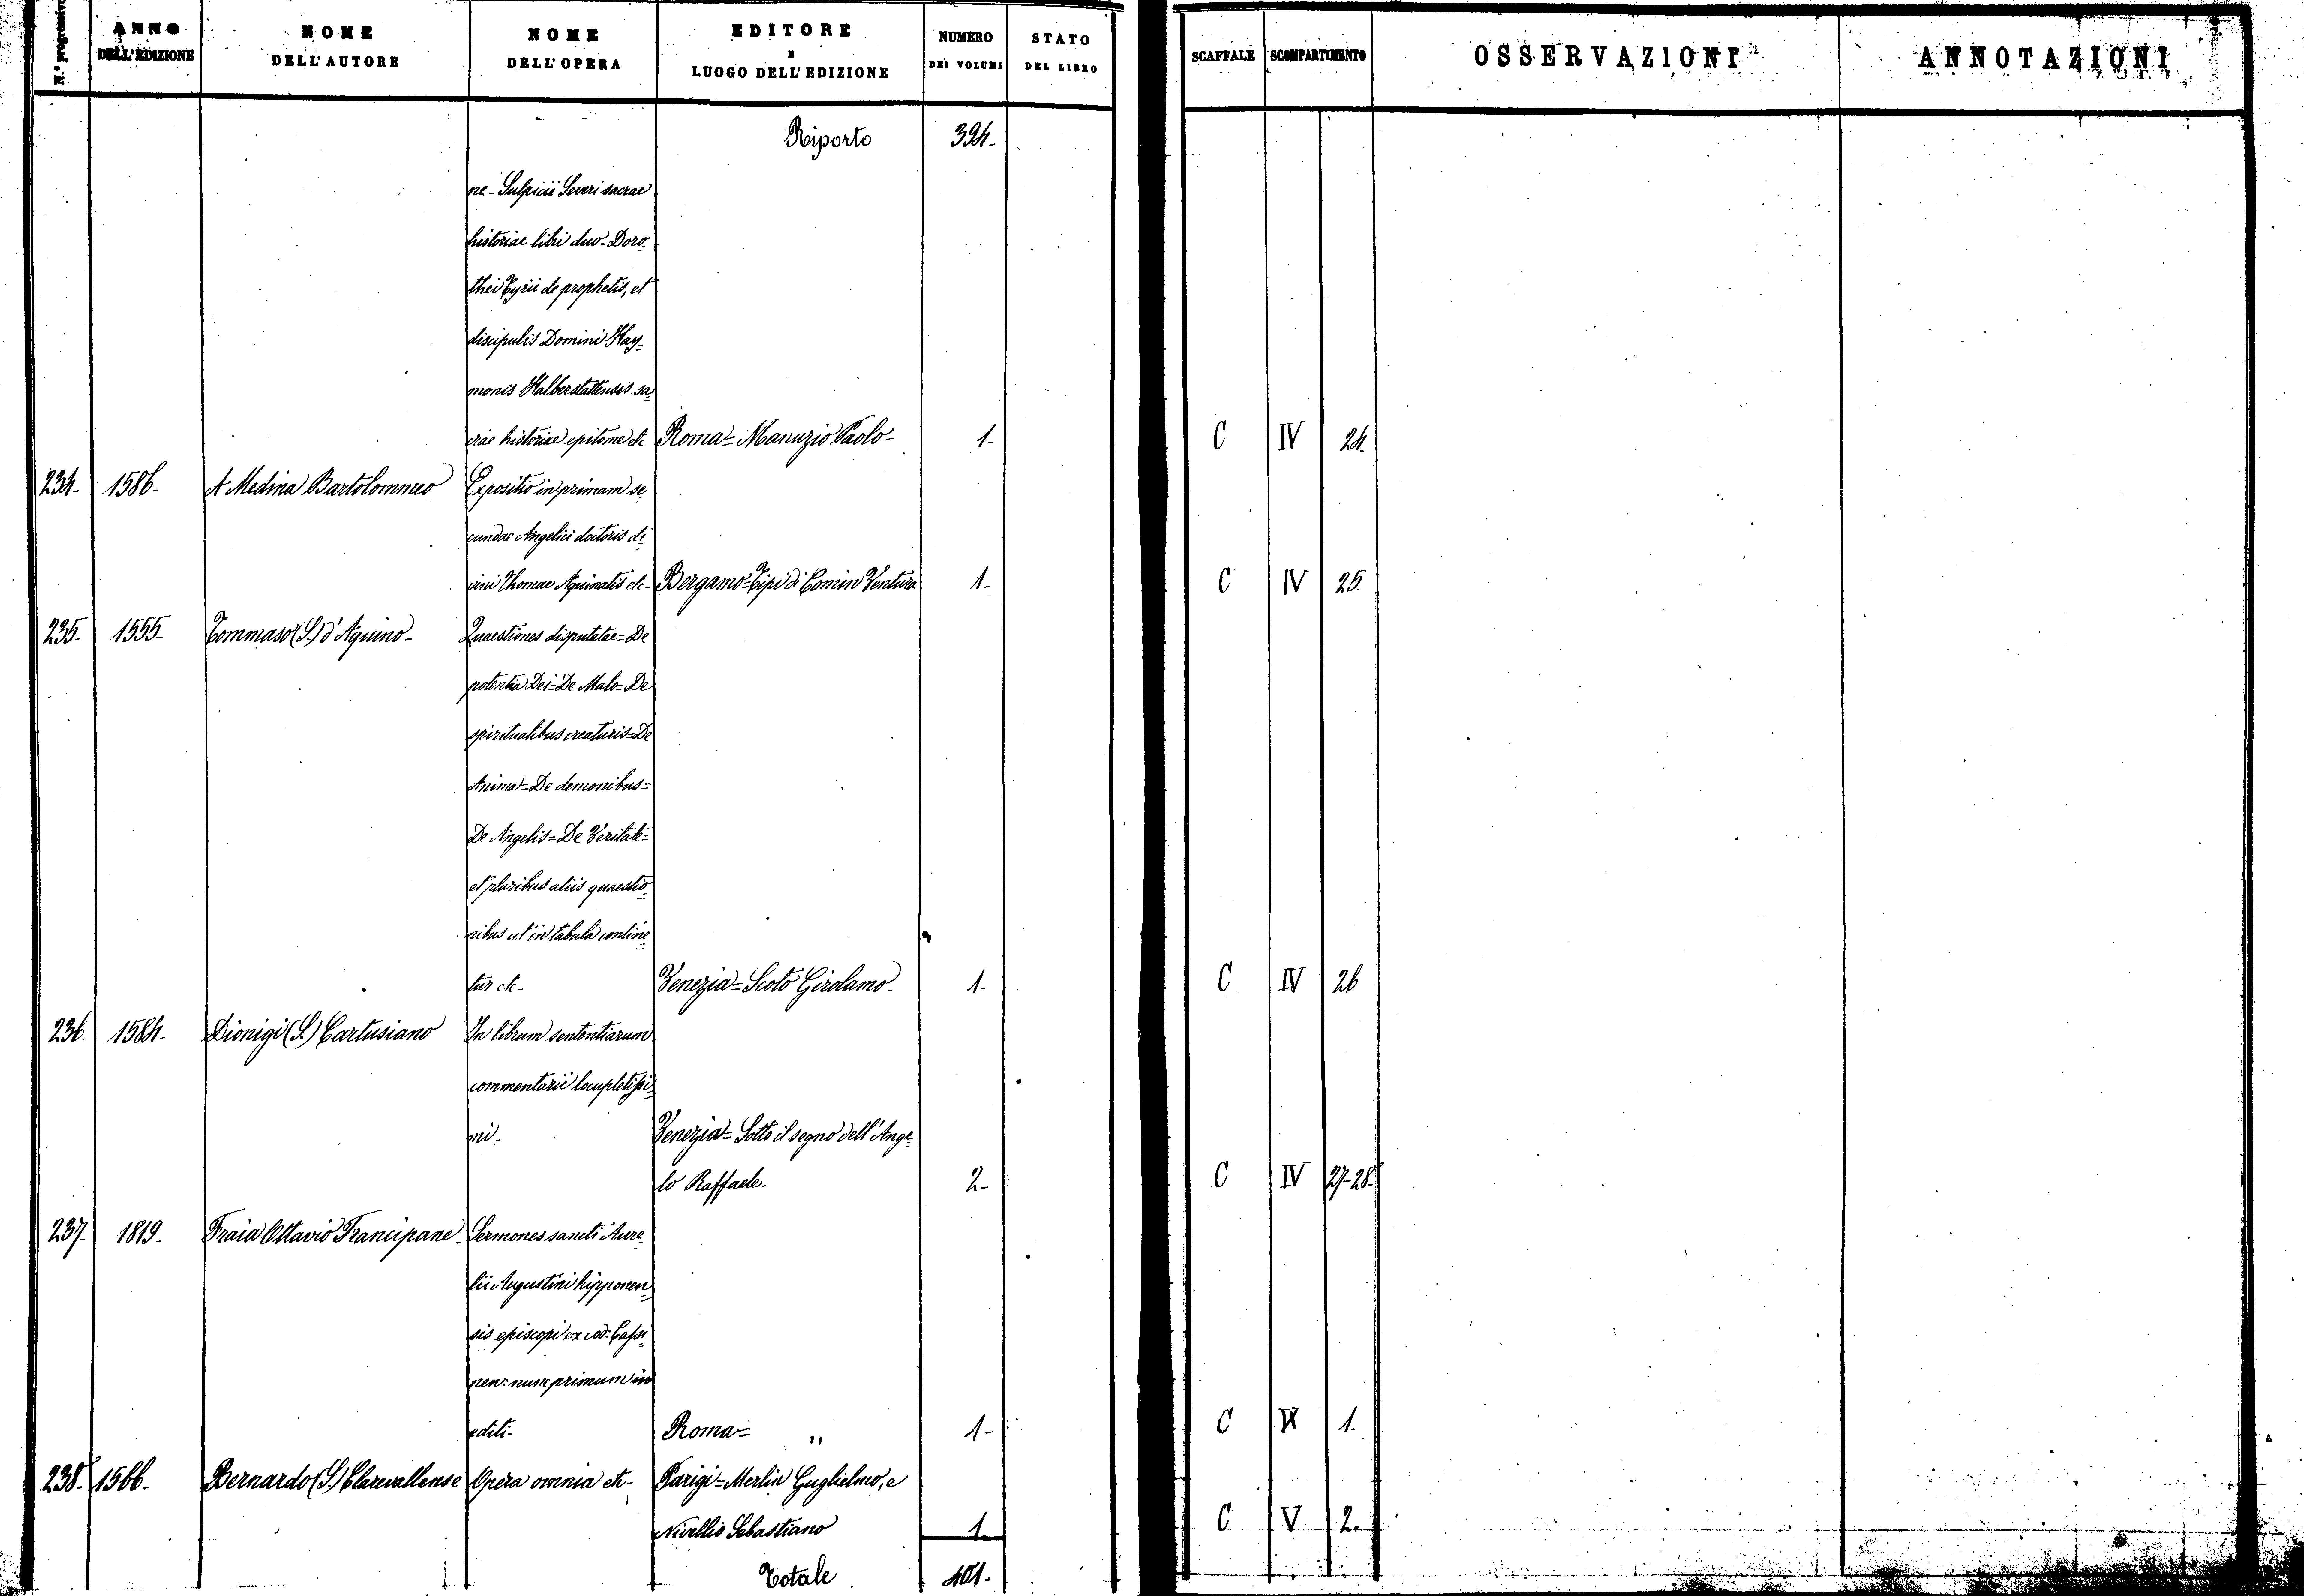 N.° progressivo ANNO DELL'EDIZIONE NOME DELL'AUTORE NOME DELL'OPERA EDITORE E LUOGO DELL'EDIZIONE NUMERO DEI VOLUMI STATO DEL LIBRO SCAFFALE SCOMPARTIMENTO OSSERVAZIONI ANNOTAZIONI
Riporto 394.
ne - Sulpicii Severi sacrae
historiae libri duo - Doro-
thei Tyrii de prophetis, et
discipulis Domini Hay-
monis Halberstattensis sa-
crae historiae epitome etc Roma = Manuzio Paolo - 1- C IV 24.
234. 1586. A Medina Bartolommeo Expositio in primam se-
cundae Angelici doctoris di-
vini Thomae Aquinatis etc - Bergamo = Tipi di Comin Ventura 1- C IV 25.
235. 1555. Tommaso (S.) d'Aquino - Quaestiones disputatae = De
potentia Dei = De Malo = De
spiritualibus creaturis = De
Anima = De demonibus =
De Angelis = De Veritate =
et pluribus aliis quaestio-
nibus ut in tabula contine-
tur etc - Venezia = Scoto Girolamo - 1- C IV 26
236. 1584. Dionigi (S.) Cartusiano In librum sententiarum
commentarii locupletissi-
mi - Venezia = Sotto il segno dell'Ange-
lo Raffaele. 2- C IV 27-28.
237. 1819. Fraia Ottavio Francipane - Sermones sancti Aure-
lii Augustini hipponen-
sis episcopi ex cod: Cassi-
nen: nunc primum in
editi - Roma = " 1- C 1.
238. 1566. Bernardo (S.) Clarevallense Opera omnia etc - Parigi = Merlin Guglielmo, e
Nivellio Sebastiano 1. C V 2.
Totale 401.